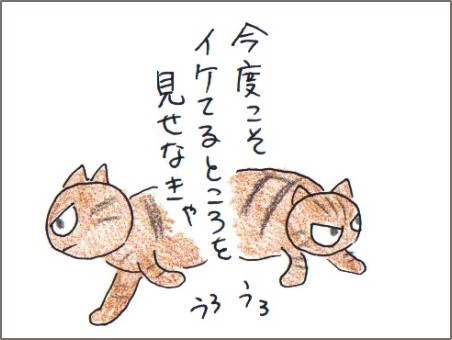 今度こそ
イケてるところを
見せなきゃ
うろ
うろ